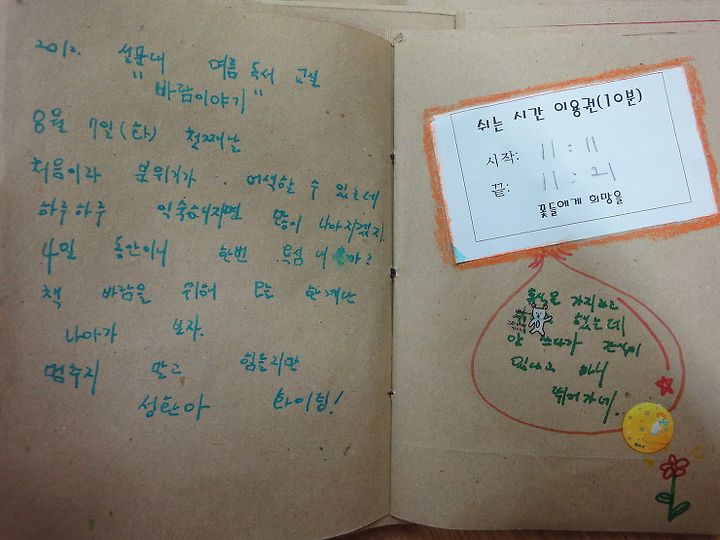 2012. 설문대 여름 독서 교실
"바람이야기"
8월 7일(화) 첫째날
처음이라 분위기가 어색할 수 있는데
하루하루 익숙해지면 많이 나아지겠지.
4일 동안이니 한번 욕심 내 볼까?
책 바람을 위해 또 한걸음
나아가 보자.
멈추지 말고 힘들지만
성한아 화이팅!
쉬는 시간 이용권(10분)
시작: 11 : 11
끝: 11 : 21
꽃들에게 희망을
가지라고
했는데
안 쓰다가 간식이
있다고 하니
뛰어가네.